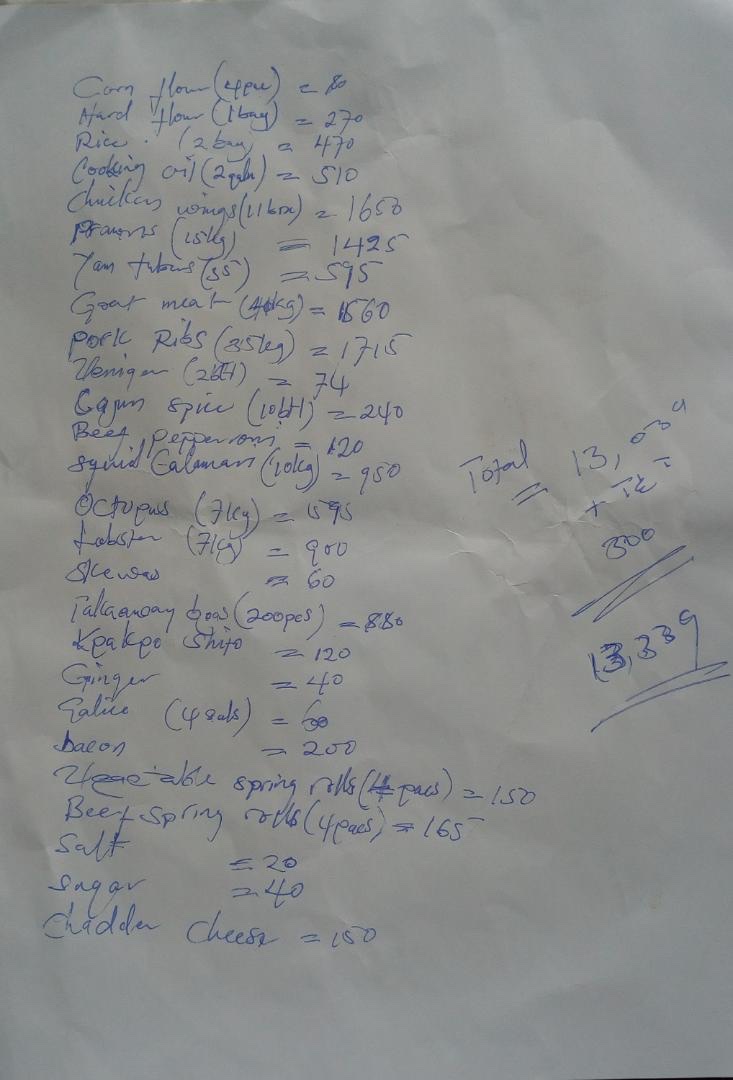 Corn flour (4pac) = 80
Hard flour (1bag) = 270
Rice. (2bag) = 470
Cooking oil (2galn) = 510
Chicken wings (11box) = 1650
Prawns (15kg) = 1425
Yam tubers (35) = 595
Goat meat (kg) = 1560
Pork Ribs (35kg) = 1715
(2btl) = 74
Cajun spice (10btl) = 240
Beef Pepperroni = 120
Squid Calamari (10kg) = 950
Octopus (7kg) = 595
Lobster (7kg) = 900
Skewas = 60
Takeaway boxs (200pcs) = 880
Kpakpo Shito = 120
Ginger = 40
Galic (4) = 60
bacon = 200
Vegetable spring rolls (4 pacs) = 150
Beef Spring rolls (4pacs) = 165
Salt = 20
Sugar = 40
Chadder Cheese = 150
Total = 13,039
+ T&T
300
13,339